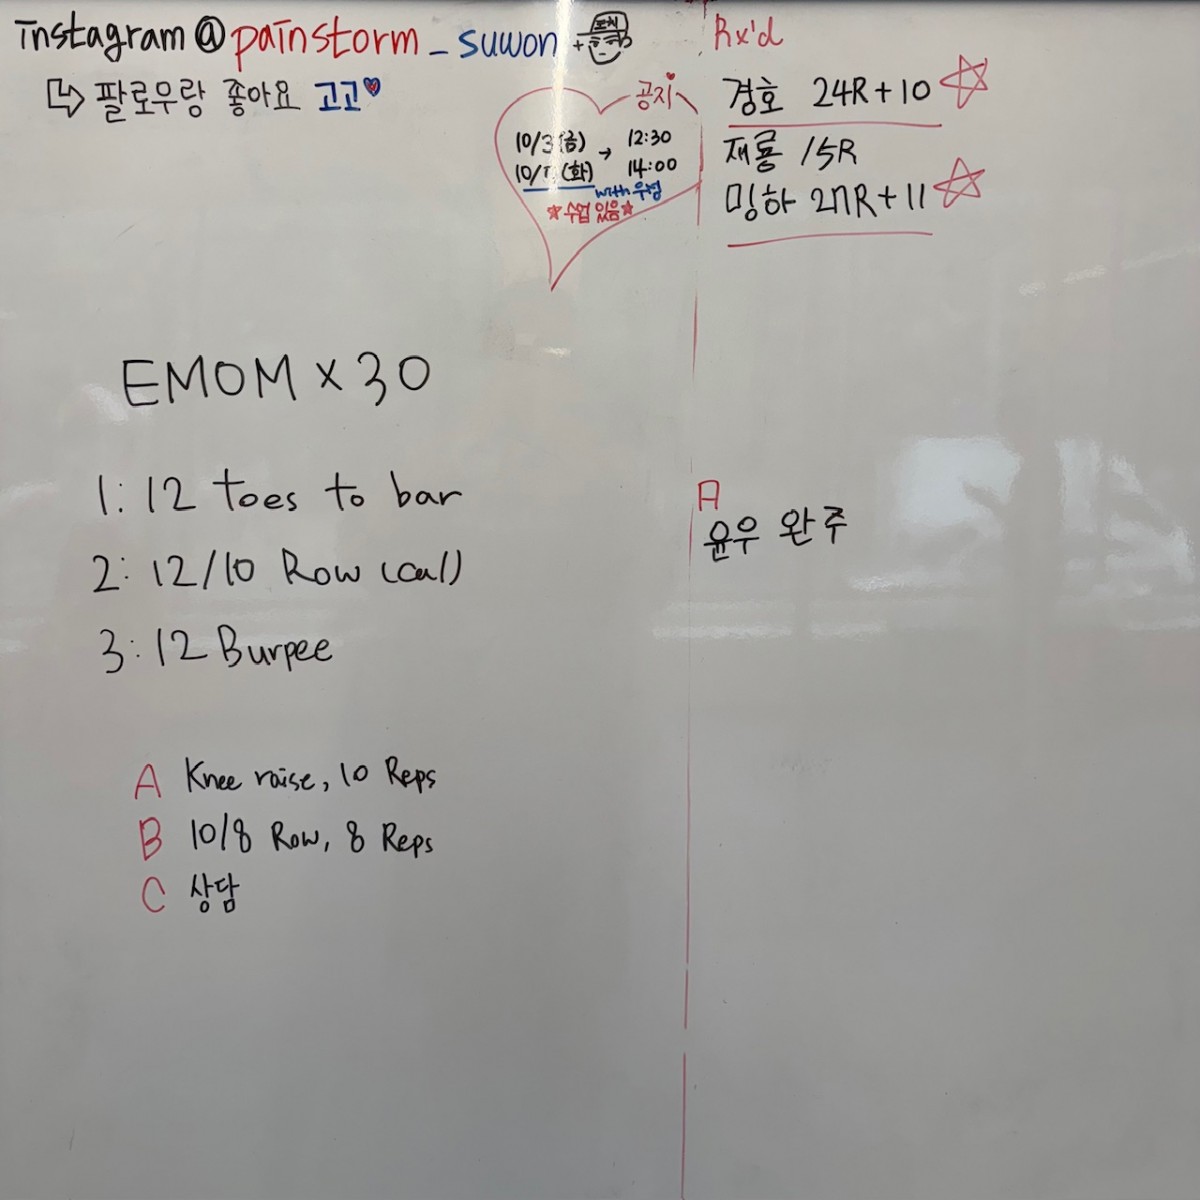 instagram@painstorm_suwon + 코치
↳ 팔로우랑 좋아요 고고♥
공지
10/3(금) → 12:30
10/7(화) 14:00
with 우성
☆수업 있음☆
Rx'd
경호 24R+10 ☆
재룡 15R
밍하 27R+11 ☆
EMOM x 30
1: 12 toes to bar
2: 12/10 Row (cal)
3: 12 Burpee
A Knee raise, 10 Reps
B 10/8 Row, 8 Reps
C 상담
A
윤우 완주